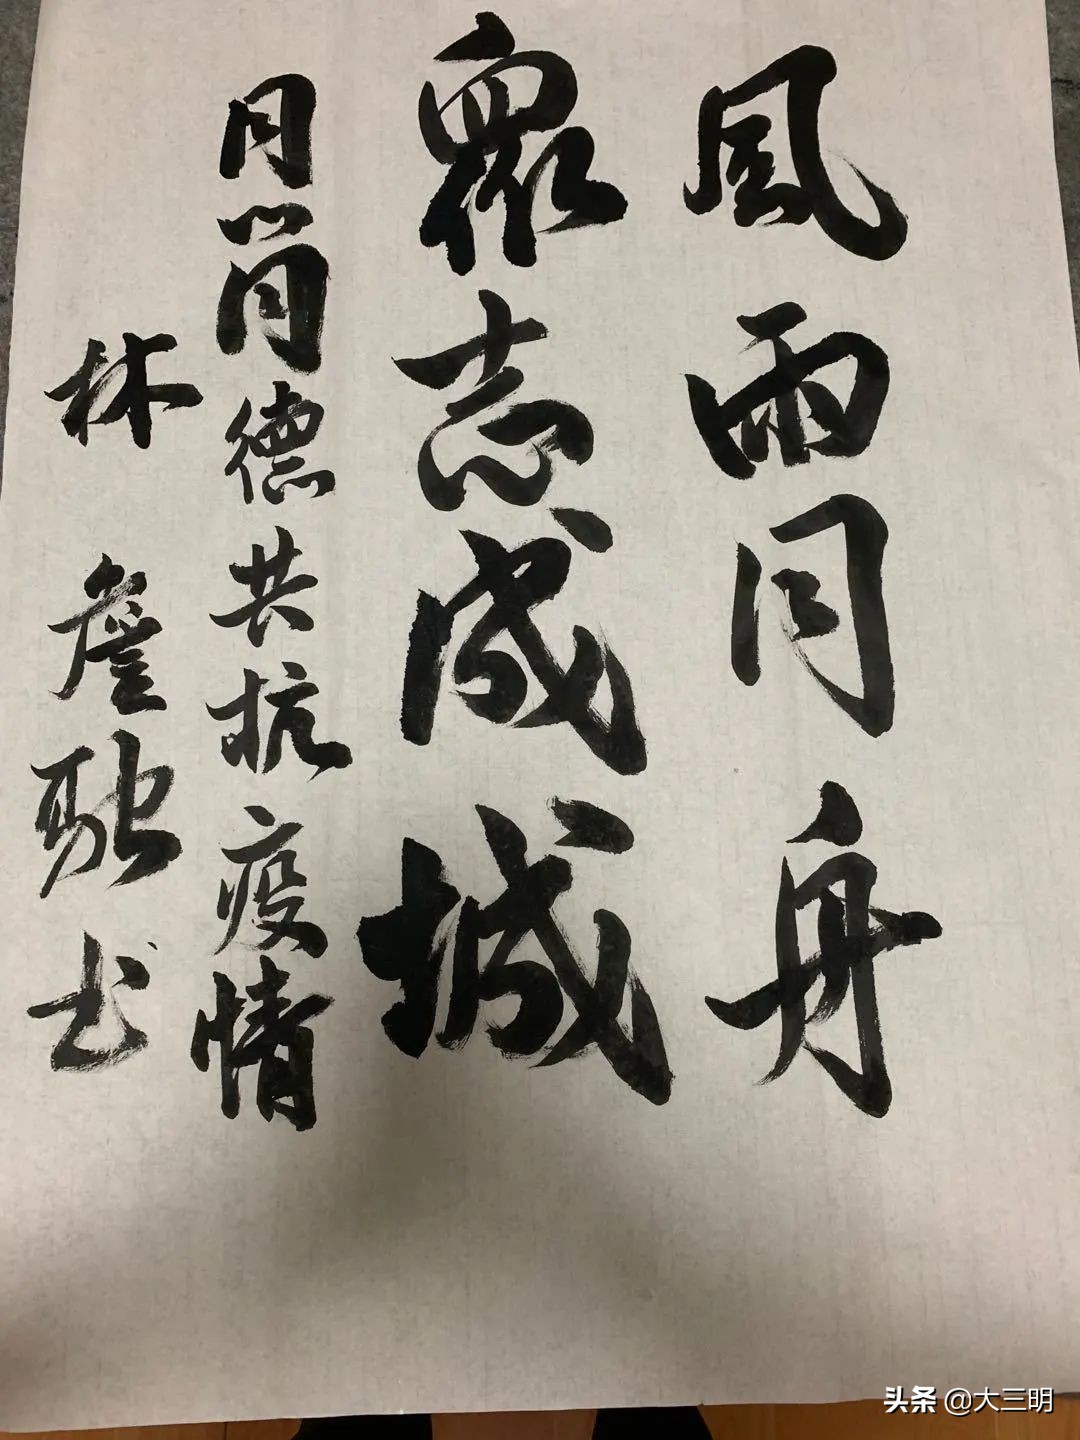 風雨同舟
衆志成城
同心同德共抗疫情
林 书
头条 @大三明